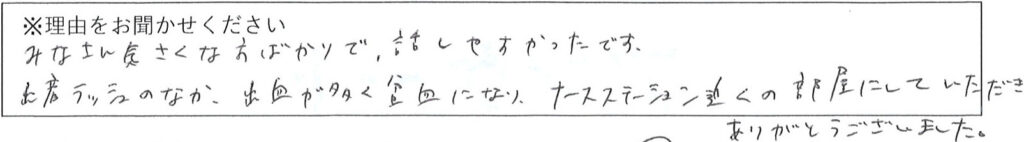 ※理由をお聞かせください
みなさん気さくな方ばかりで、話しやすかったです。
出産ラッシュのなか、出血が多く貧血になり、ナースステーション近くの部屋にしていただき
ありがとうございました。